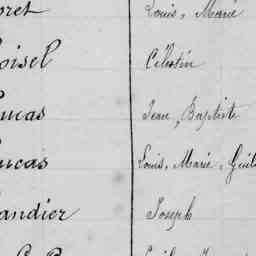 oret Louis, Marie
oisel Célestin
ucas Jean, Baptiste
ucas Louis, Marie, Guil
andier Joseph